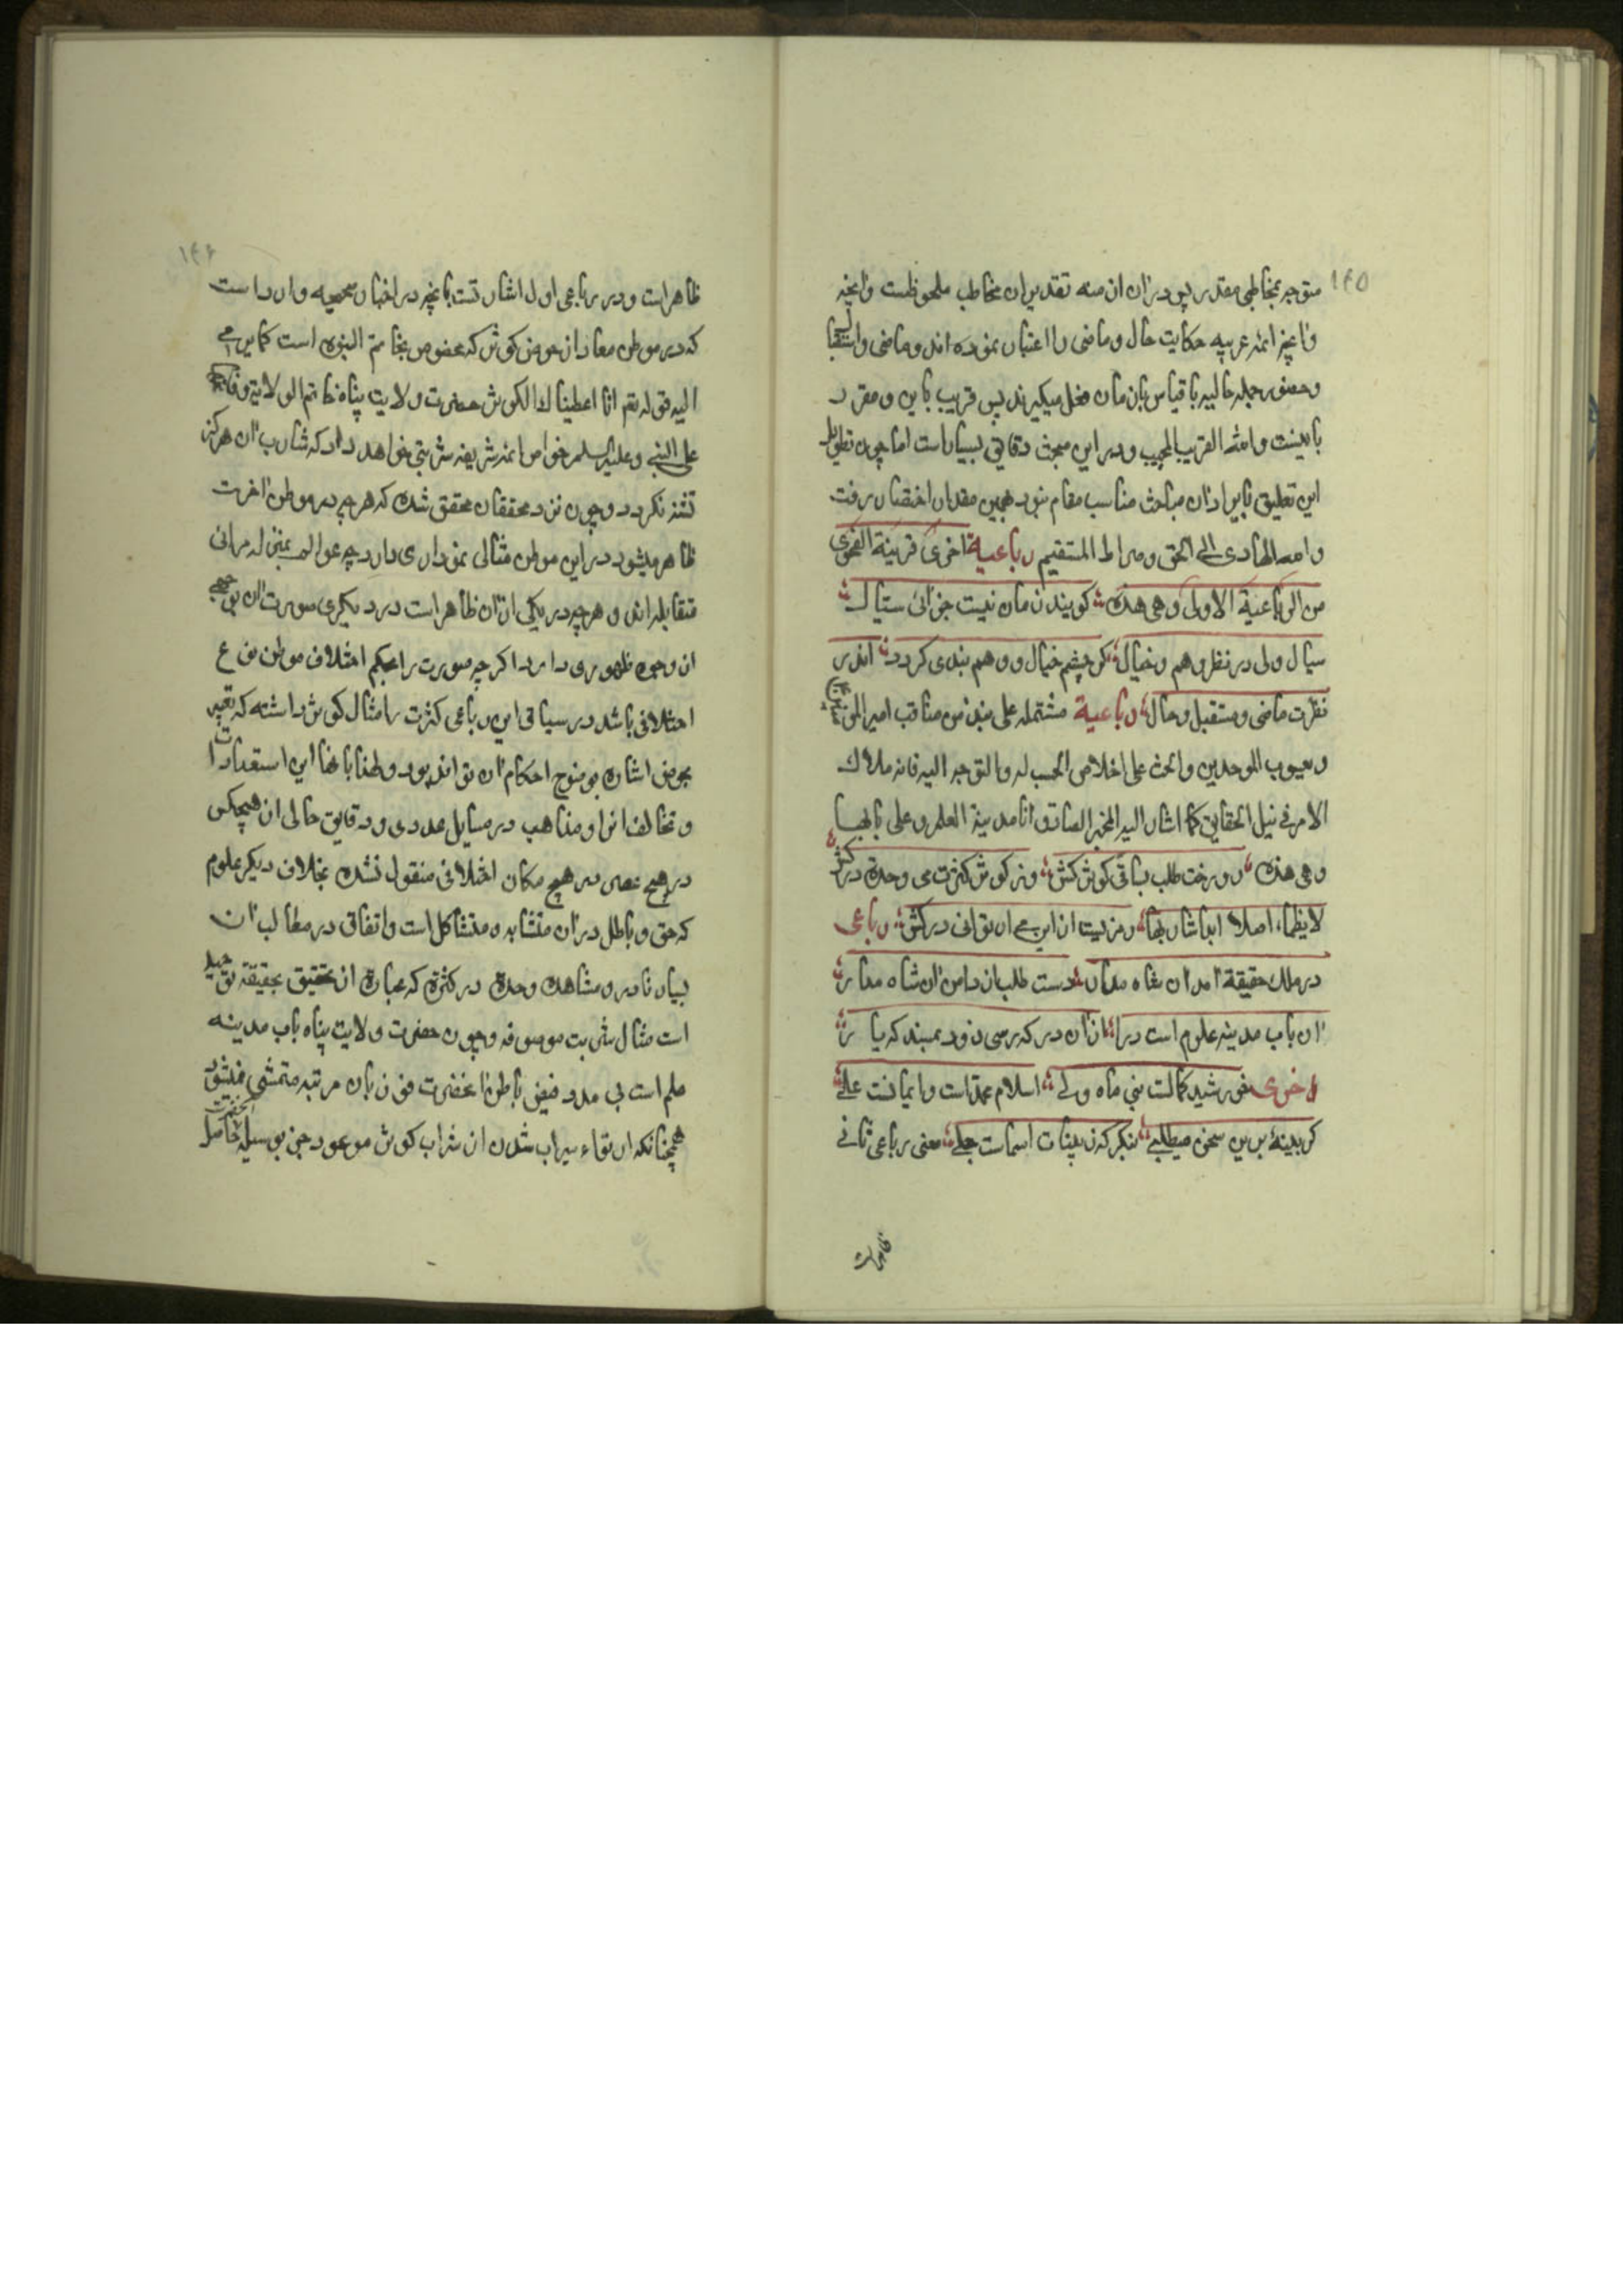 ۱۴۵
متوجه بمخاطبی مقدر بود در آن ازمنه تقدیر آن مخاطب ملحوظست و آنچه
و آنچه ائمه عربیه حکایت حال و ماضی را اعتبار نموده اند و ماضی و استقبال
و حضور جمله حالیه با قیاس بآن زمان میگیرند پس قریب باین و مقرر
باینست و الله القریب المجیب و در این مبحث دقایق بسیار است اما چون تطویل
این تعلیق بایراد آن مباحث مناسب مقام نبود همین مقدار اختصار رفت
والله الهادی الی الحق و صراط المستقیم رباعیة اخری قرینة الفحوی
من الرباعیة الاولی و هی هذه کویند زمان نیست جز آنی سیال
سیال ولی در نظر وهم و خیال کر چشم خیال و وهم بندی کردد اندر
نظرت ماضی و مستقبل و حال رباعیة مشتمله علی نبذ من مناقب امیر المؤمنین
و یعسوب الموحدین و الحث علی اخلاص الحب له و التوجه الیه فانه ملاک
الامر فی نیل الحقایق کما اشار الیه المخبر الصادق انا مدینة العلم و علی بابها
و هی هذه رو رخت طلب بساقی کوثر کش وز کوثر کثرت می وحدة درکش
لایظماء اصلا ابدا شاربها رمزیست از این می ار توانی درکش رباعی
در ملک حقیقة آمد آن شاه مدار دست طلب از دامن آن شاه مدار
آن باب مدینه علوم است درا از آن در که رسی زود بمبند که یار
اخری خورشید کمالست نبی ماه ولی اسلام محمدست و ایمانست علی
کر بینهٔ برین سخن میطلبی بنکر که ز بینات اسماست جلی معنی رباعی ثانی
ظاهراست
۱۴۶
ظاهراست و در رباعی اول اشارتست بآنچه در اخبار صحیحه وارد است
که در موطن معاد از حوض کوثر که مخصوص بخاتم النبوة است کما یومی
الیه قوله تعم انا اعطیناک الکوثر حضرت ولایت پناه خاتم الولایة و فاتحها
علی النبی و علیه السلم خواص ائمه شریفه شربتی خواهد داد که شارب آن هرکز
تشنه نکردد و چون نزد محققان محقق شده که هر چه در موطن آخرت
ظاهر میشود در این موطن مثالی نموداری دارد چه عوالم بمنزله مرائی
متقابله اند و هر چه در یکی از آن ظاهر است در دیکری صورت آن بوجهی
از وجوه ظهوری دارد اکر چه صورت را بحکم اختلاف موطن نوع
اختلافی باشد در سیاق این رباعی کثرت را مثال کوثر داشته که تعبیر
بحوض اشاره بوضوح احکام آن تواند بود و لهذا با نهایت استعدادات
و تخالف انواع مذاهب در مسایل عددی و دقایق حالی از هیچکس
در هیچ عصر در هیچ مکان اختلافی منقول نشده بخلاف دیکر علوم
که حق و باطل در آن متشابه و متشاکل است و اتفاق در مطالب آن
بسیار نادر و مشاهده وحدة در کثرة که عبارة از تحقیق بحقیقة توحید
است مثال شربت موصوفه و چون حضرت ولایت پناه باب مدینه
علم است بی مدد فیض باطن آنحضرت فوز بآن مرتبه متمشی نمیشود
همچنانکه ارتقاء سیراب شدن از شراب کوثر موعود جز بوسیله آنحضرت حاصل